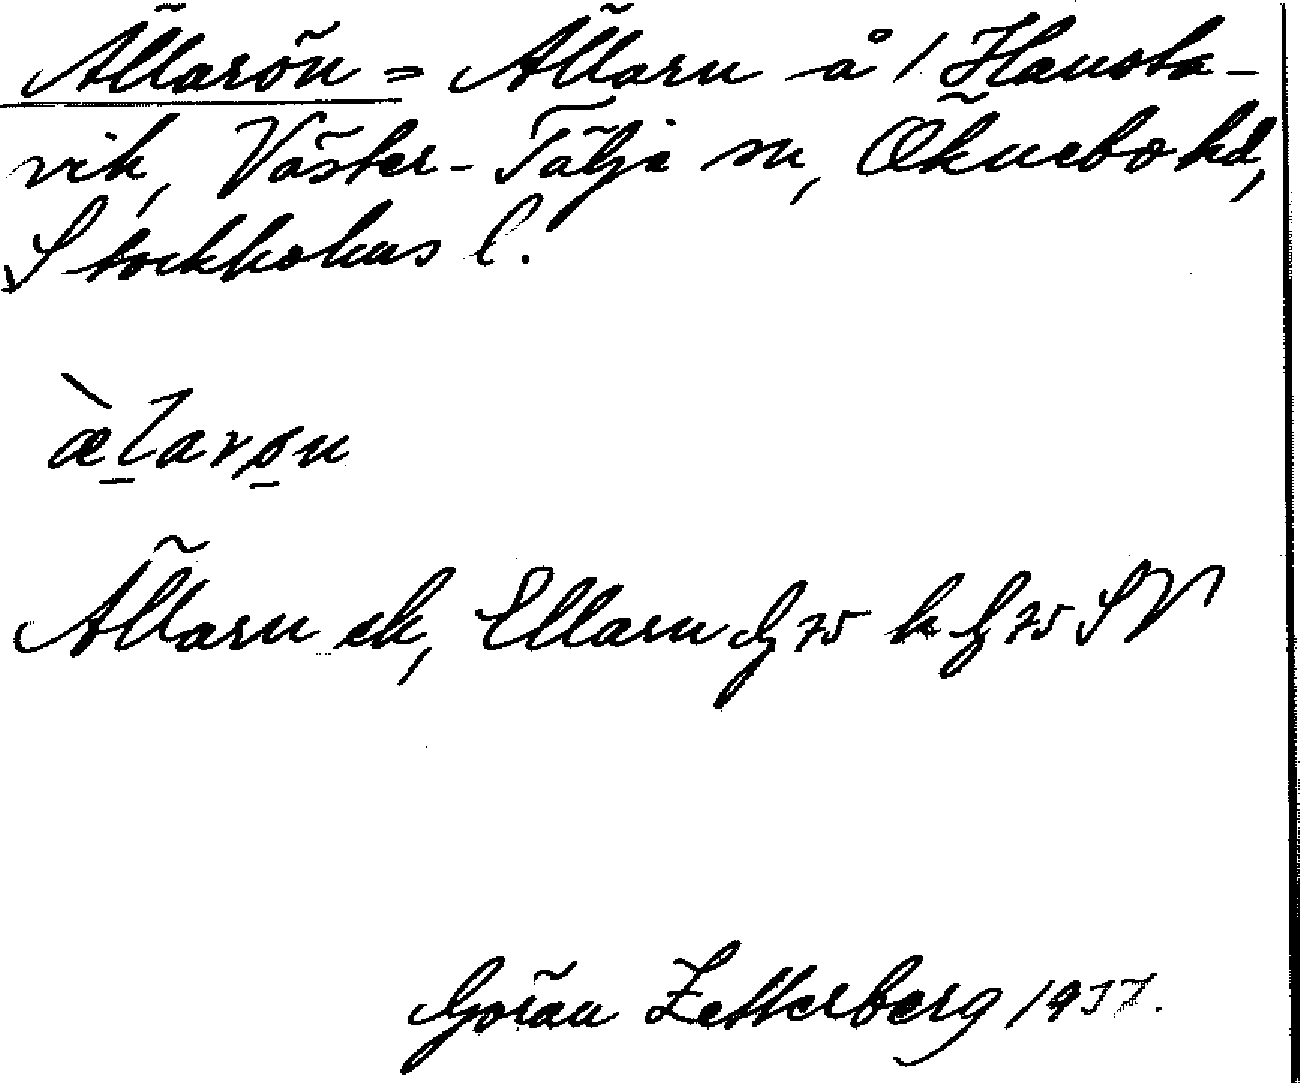 Ällarön = Ällarn å / Hausta-
vik, Väster-Tälje sn, Öknebo hd,
Stockholms l.
ælarøn
Ällarn ek, Ellarn Gj 75 k Gj 75 SV
Göran Zetterberg 1937.